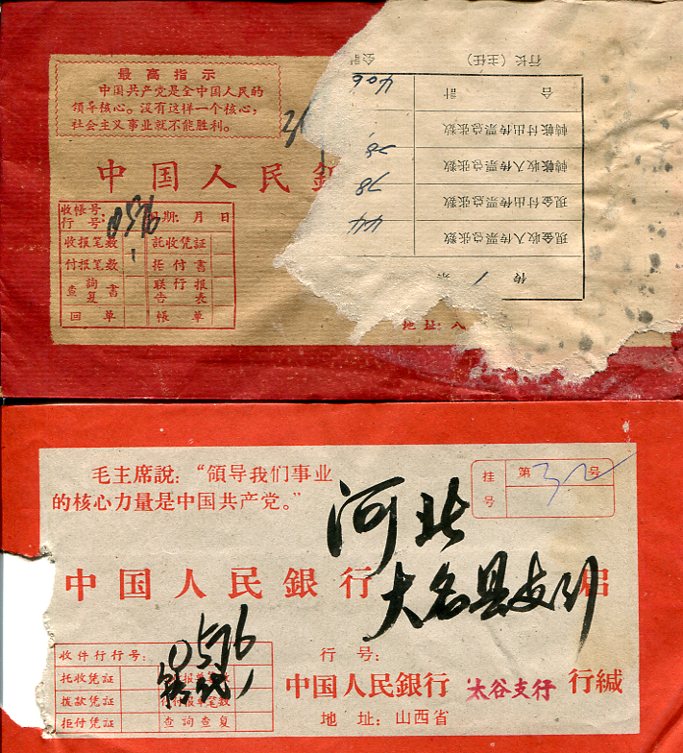 最高指示
中国共产党是全中国人民的
领导核心。没有这样一个核心,
社会主义事业就不能胜利。
中国人民銀
收帳号
行号:
0576
日期: 月 日
收报笔数
託收凭証
付报笔数
拒付書
查詢書
复
联行报
告表
回单
帳单
地址:
行长(主任)
会計
合計
406
轉帐付出传票总张数
轉帐收入传票总张数
78
现金付出传票总张数
78
现金收入传票总张数
44
传
毛主席說:“領导我们事业
的核心力量是中国共产党。”
挂号
第32号
河北
中国人民銀行
启
大名县支行
0576
收件行行号:
托收凭証
拨款凭証
拒付凭証
查詢查复
行号:
中国人民銀行 太谷支行 行緘
地址:山西省